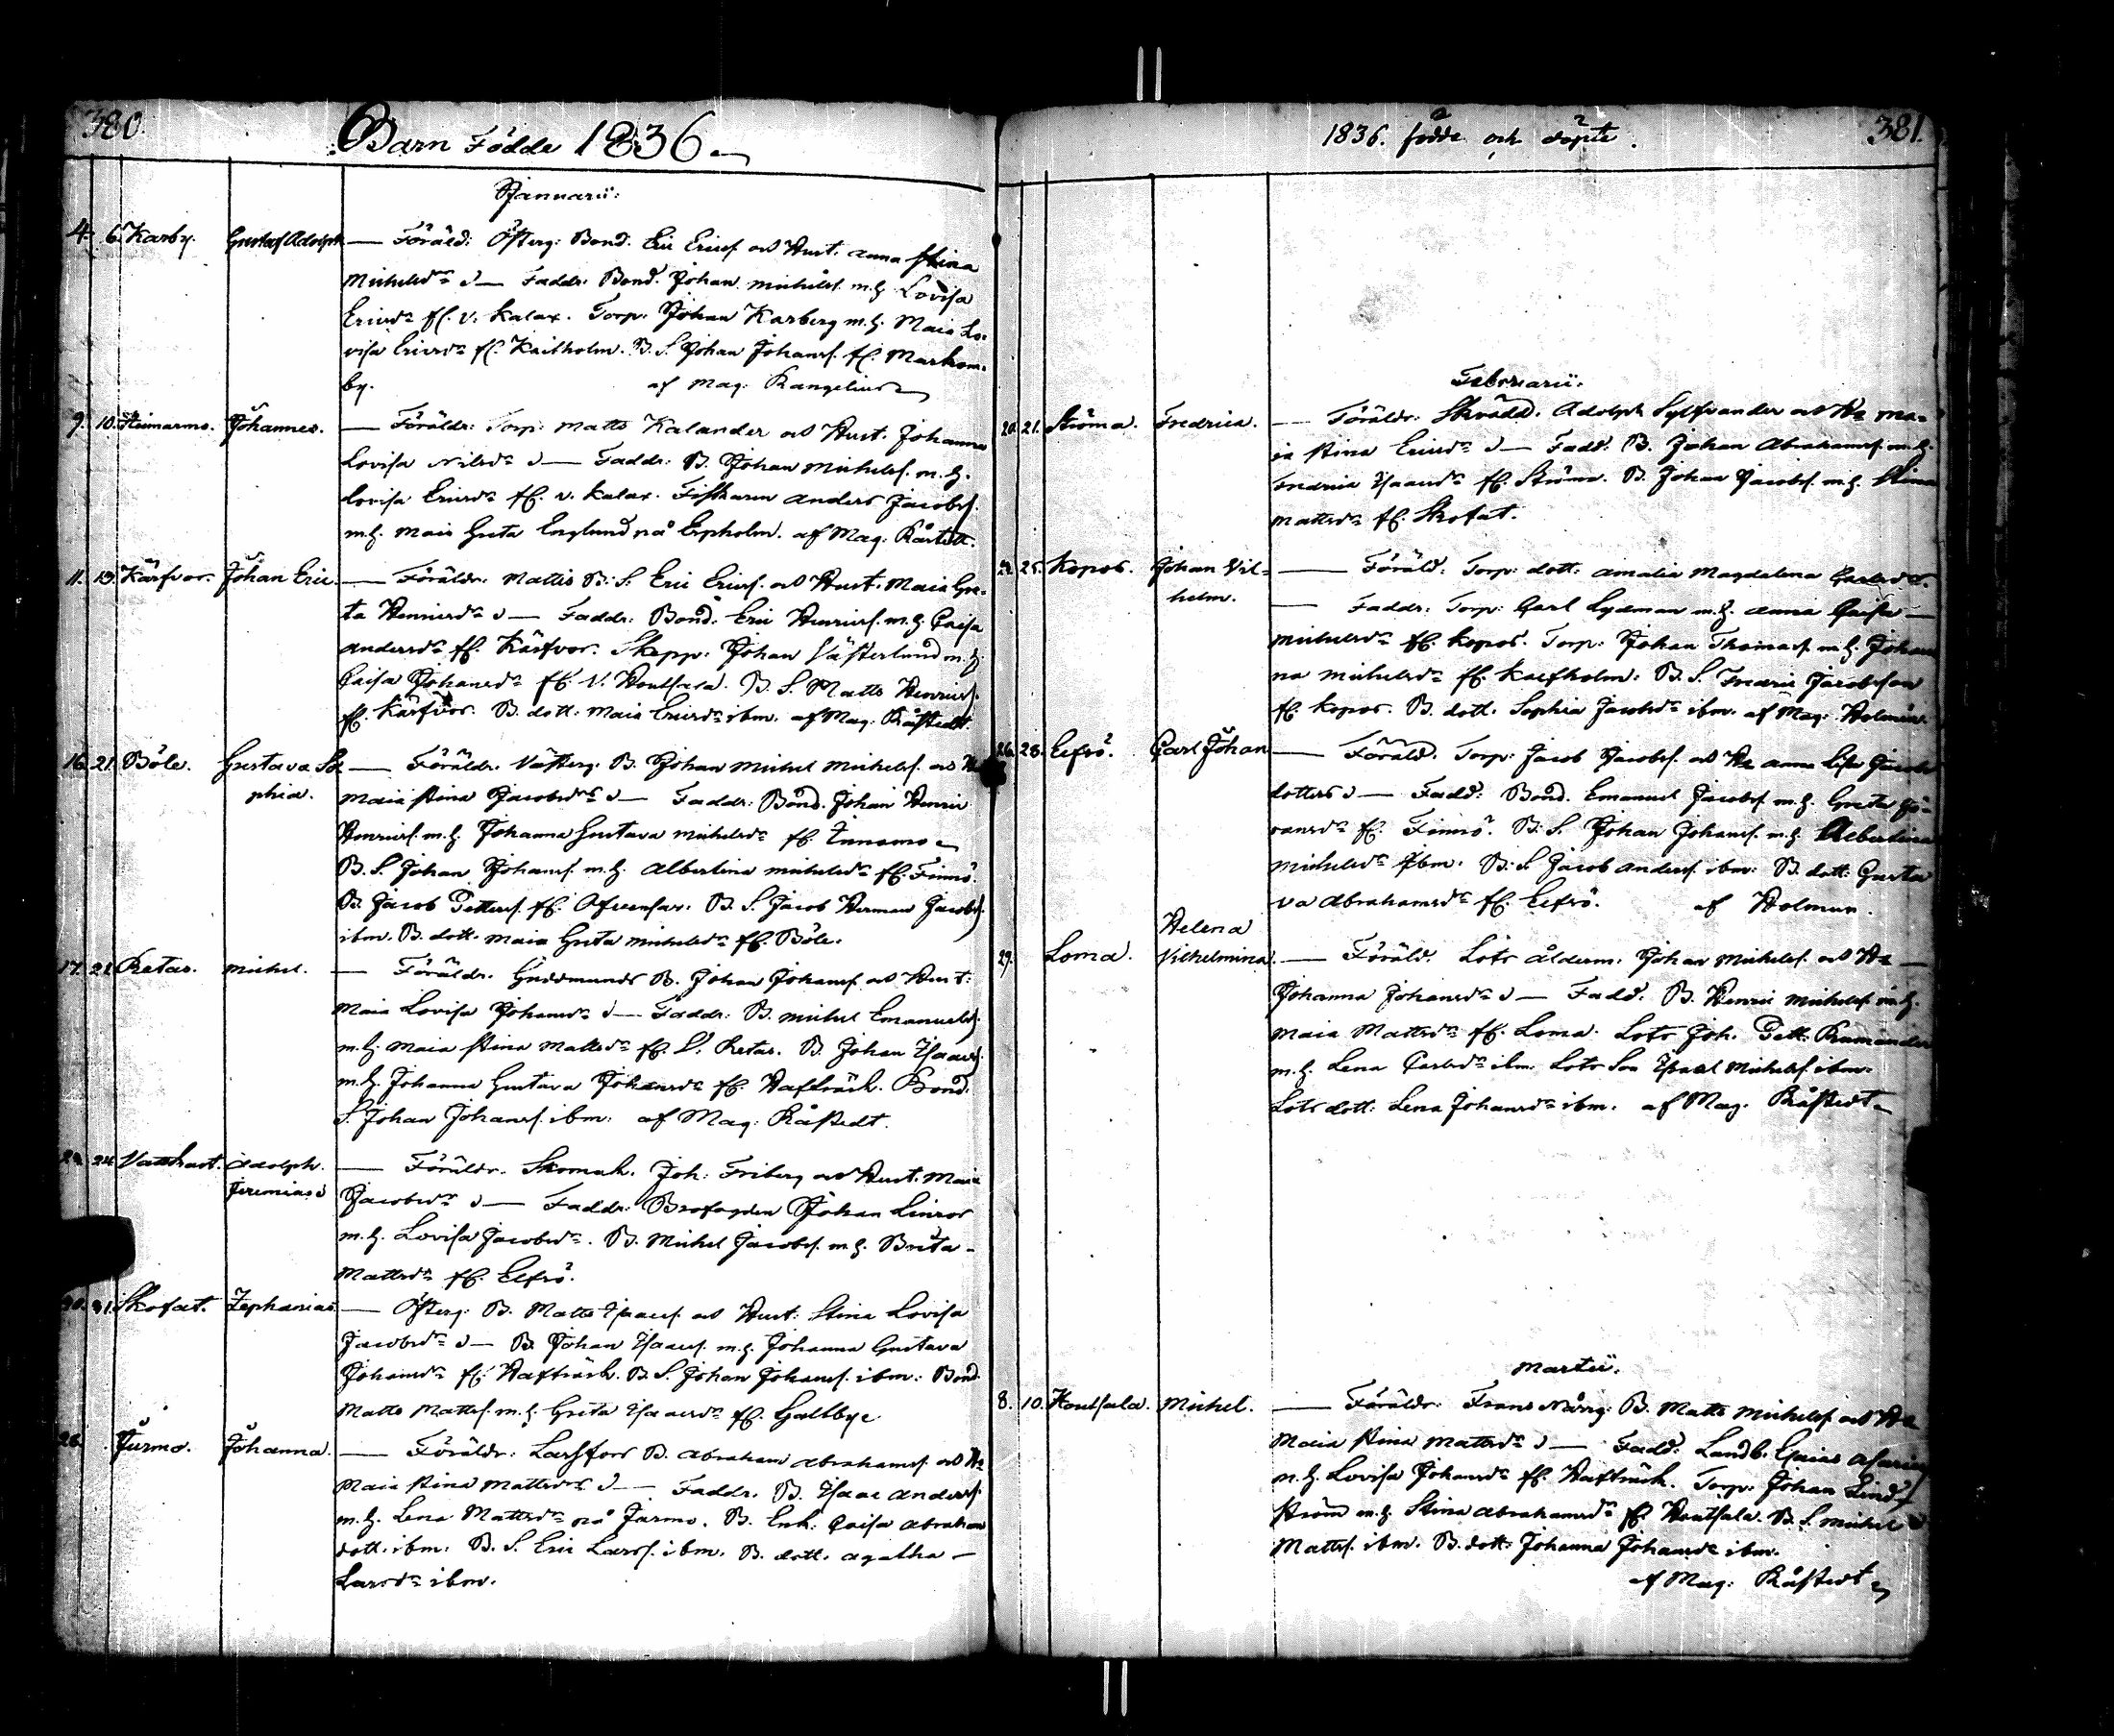 380.
Barn Födde 1836.
Januarii:
4. 6. Karby. Gustaf Adolph — Föräld: Österg: Bond. Eric Ericss. och Hust. Anna Stina
Michelsdr — Faddr. Bond. Johan Michelss. m.h. Lovisa
Ericsdr fr. V. Kalax. Torp. Johan Karberg m.h. Maia Lo-
visa Ericsdr fr. Kaitholm. B. S. Johan Johanss. fr. Markom-
by. af Mag: Rangelius
9. 10. Johannes. — Föräldr: Torp: Matts Kalander och Hust. Johanna
Lovisa Nilsdr — Faddr: B. Johan Michelss. m.h.
Lovisa Ericsdr fr. V. Kalax. Fiskaren Anders Jacobss.
m.h. Maia Greta Englund på Erpholm. af Mag. Råstedt.
11. 13. Kärfvor. Johan Eric. — Föräldr. Mattis B. S. Eric Ericss. och Hust. Maia Gre-
ta Henricsdr — Faddr: Bond. Eric Henricss. m.h. Caisa
Andersdr fr. Kärfvor. Skepp: Johan Västerlund m.h.
Caisa Johansdr fr. V. Houtsala. B. S. Matts Henricss.
fr. Kärfvor. B. dott. Maia Ericsdr ibm. af Mag. Råstedt.
16. 21. Böle. Gustava So- — Föräldr. Västerg. B. Johan Michel Michelss. och H
phia. Maia Stina Jacobsdr — Faddr: Bond. Johan Henric
Henricss. m.h. Johanna Gustava Michelsdr fr.
B. S. Johan Johanss. m.h. Albertina Michelsdr fr. Finnö.
B. Jacob Petterss. fr. B. S. Jacob Herman Jacobss.
ibm. B. dott. Maia Greta Michelsdr fr. Böle.
17. 21. Retas. Michel. — Föräldr. Guddmunds B. Johan Johanss. och Hust:
Maia Lovisa Johansdr — Faddr: B. Michel Emanuelss.
m.h. Maia Stina Mattsdr fr. L. Retas. B. Johan Isaacss.
m.h. Johanna Gustava Johansdr fr. Hafträsk. Bond.
S. Johan Johanss. ibm: af Mag: Råstedt.
24. Adolph — Föräldr. Skomak. Joh: Friberg och Hust. Maia
Jeremias Jacobsdr — Faddr: Brofogden Johan Linros
m.h. Lovisa Jacobsdr. B. Michel Jacobss. m.h. Brita
Mattsdr fr. Elfsö.
30. 31. Skofat. Zephanias — Österg: B. Matts Isaacss. och Hust: Stina Lovisa
Jacobsdr — B. Johan Isaacss. m.h. Johanna Gustava
Johansdr fr. Hafträsk. B. S. Johan Johanss. ibm: Bond.
Matts Mattss. m.h. Greta Isaacsdr fr. Galtbye
26. Jurmo. Johanna. — Föräldr: Larsfors B. Abraham Abrahamss. och H
Maia Stina Mattsdr — Faddr. B. Isaac Anderss.
m.h. Lena Mattsdr på Jurmo. B. Enk. Caisa Abrahams
dott. ibm. B. S. Eric Larss. ibm. B. dott. Agatha
Larsdr ibm.
1836. födde och döpte.
381.
Februarii.
20. 21. Ströma. Fredrica. — Föräldr: Skrädd. Adolph Sylfvander och H Ma-
ia Stina Ericsdr — Fadd. B. Johan Abrahamss. m.h.
Fredrica Isaacsdr fr. Ströma. B. Johan Jacobss. m.h. Stina
Mattsdr fr. Skofat.
25. Kopos. Johan Vil- — Föräld. Torp: dott. Amalia Magdalena Carlsdr.
helm. — Faddr: Torp: Carl Lydman m.h. Anna Caisa
Michelsdr fr. Kopos. Torp: Johan Thomass. m.h. Johan-
na Michelsdr fr. Kalfholm: B. S. Fredric Jacobsson
fr. Kopos. B. dott. Sophia Jacobsdr ibm. af Mag: Holmén.
26. 28. Elfsö. Carl Johan — Föräld. Torp: Jacob Jacobss. och H Anna Lisa Jacobs
dotter — Fadd: Bond. Emanuel Jacobss. m.h. Greta Gö-
ransdr fr. Finnö. B. S. Johan Johanss. m.h. Albertina
Michelsdr ibm. B. S. Jacob Anderss. ibm: B. dott: Gusta
va Abrahamsdr fr. Elfsö. af Holmén.
29. Loma. Helena
Vilhelmina. — Föräld. Lots ålderm. Johan Michelss. och H
Johanna Johansdr — Fadd. B. Henric Michelss. m.h.
Maia Mattsdr fr. Loma. Lots Joh. Pett. Ramander
m.h. Lena Carlsdr ibm. Lots Son Isaac Michelss. ibm.
Lots dott. Lena Johansdr ibm. af Mag. Råstedt
Martii.
8. 10. Houtsala. Michel. — Föräldr. Frans B. Matts Michelss. och H
Maia Stina Mattsdr — Fadd. Landb. Esaias
m.h. Lovisa Johansdr fr. Hafträsk. Torp: Johan Lind-
ström m.h. Stina Abrahamsdr fr. Houtsala. B. S. Michel
Mattss. ibm. B. dott. Johanna Johansdr ibm.
af Mag: Råstedt